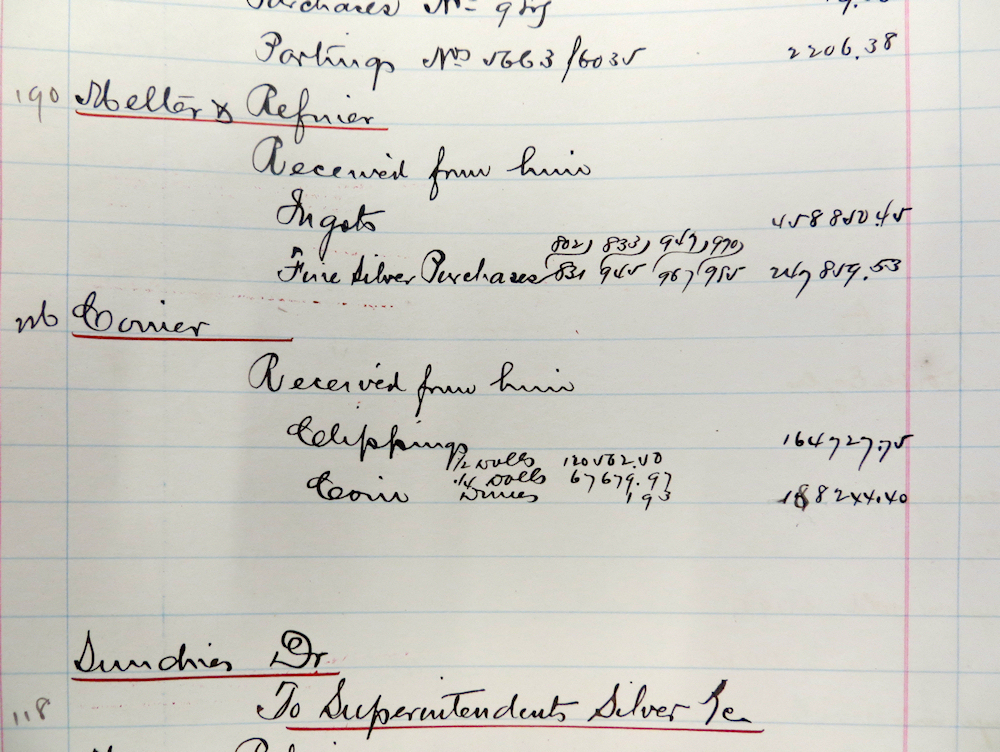 Purchases Nº
Partings Nos 5663/6035 2206.38
190 Melter & Refiner
Received from him
Ingots 458850.45
802, 833, 947, 970,
Fine Silver Purchases 831 945 967 985 247859.53
Coiner
Received from him
Clippings 164727.75
1/2 Dolls 120562.50
1/4 Dolls 67679.97
Coin Dimes 1 93 188244.40
Sundries Dr
118 To Superintendents Silver
Refiner